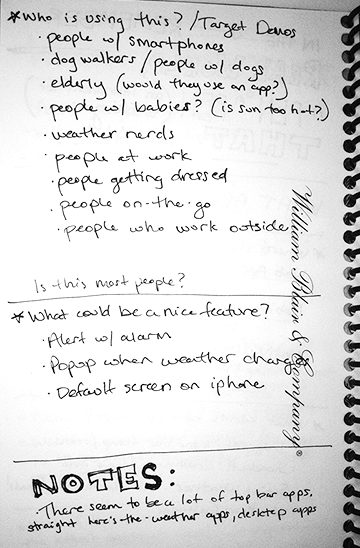 *Who is using this? / Target Demos
· people w/ smartphones
· dog walkers / people w/ dogs
· elderly (would they use an app?)
· people w/ babies? (is sun too hot?)
· weather nerds
· people at work
· people getting dressed
· people on-the-go
· people who work outside
Is this most people?
*What could be a nice feature?
· Alert w/ alarm
· Popup when weather changes
· Default screen on iphone
William Blair & Company®
NOTES:
· There seem to be a lot of top bar apps,
straight here's-the-weather apps, desktop apps